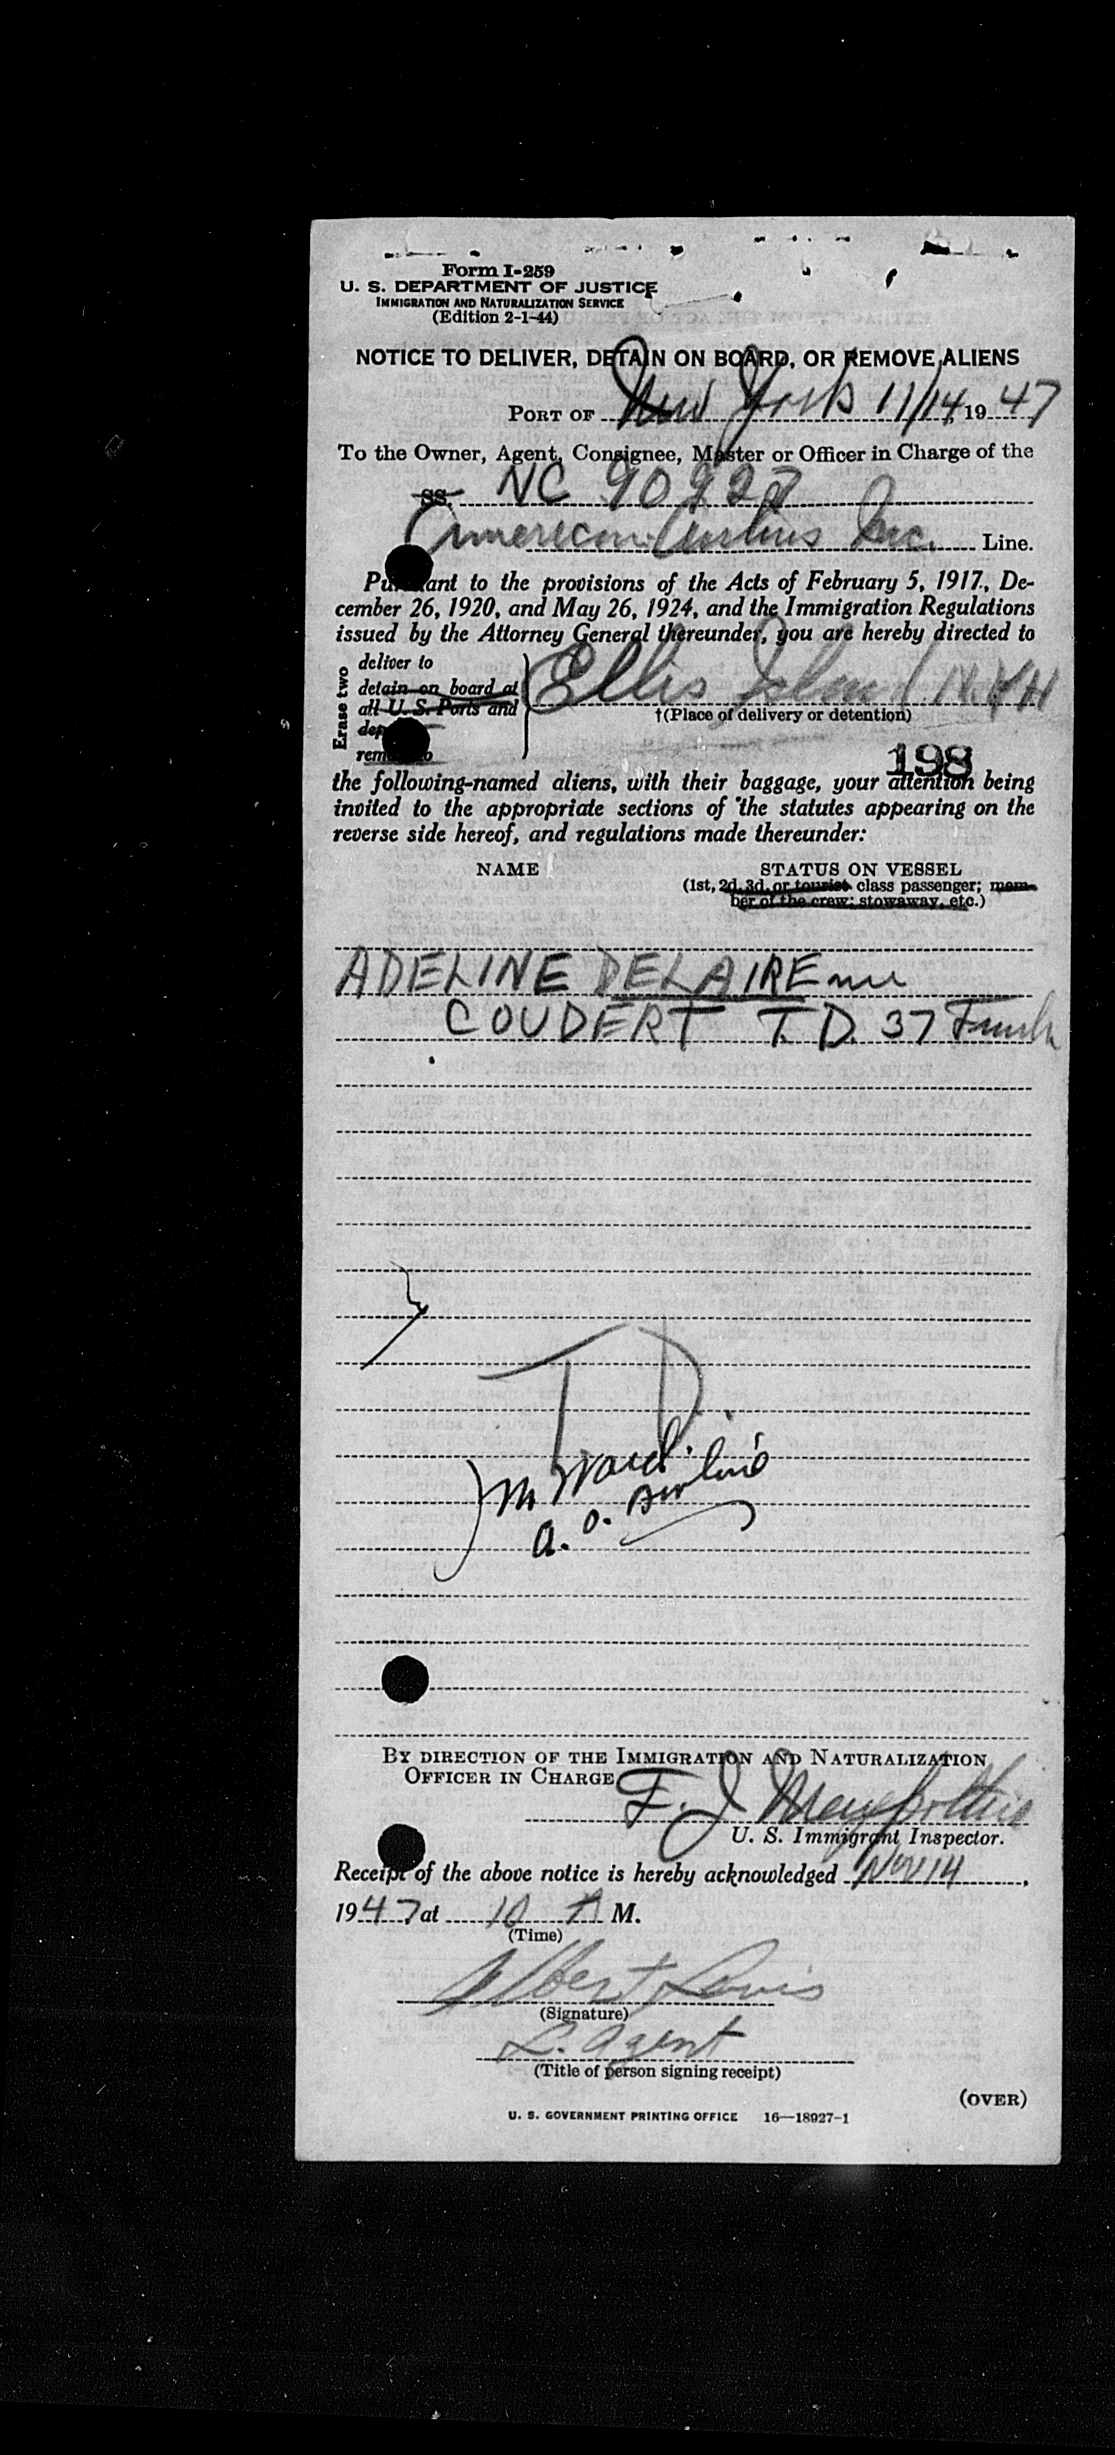 Form I-259
U. S. DEPARTMENT OF JUSTICE
IMMIGRATION AND NATURALIZATION SERVICE
(Edition 2-1-44)
NOTICE TO DELIVER, DETAIN ON BOARD, OR REMOVE ALIENS
PORT OF New York 11/14, 1947
To the Owner, Agent, Consignee, Master or Officer in Charge of the
SS. NC 90927
American Airlines Inc. Line.
Pursuant to the provisions of the Acts of February 5, 1917, De-
cember 26, 1920, and May 26, 1924, and the Immigration Regulations
issued by the Attorney General thereunder, you are hereby directed to
Erase two
deliver to
detain on board at
all U. S. Ports and
remove to
Ellis Island N.Y.H
†(Place of delivery or detention)
198
the following-named aliens, with their baggage, your attention being
invited to the appropriate sections of the statutes appearing on the
reverse side hereof, and regulations made thereunder:
NAME STATUS ON VESSEL
(1st, 2d, 3d, or tourist class passenger; mem-
ber of the crew; stowaway, etc.)
ADELINE DELAIRE nee
COUDERT T.D. 37 French
T D.
M Ward.
a. o. Airline
BY DIRECTION OF THE IMMIGRATION AND NATURALIZATION
OFFICER IN CHARGE
F. J.
U. S. Immigrant Inspector.
Receipt of the above notice is hereby acknowledged Nov 14,
1947 at 10 A M.
(Time)
Albert Lewis
(Signature)
L. agent
(Title of person signing receipt)
(OVER)
U. S. GOVERNMENT PRINTING OFFICE 16—18927-1